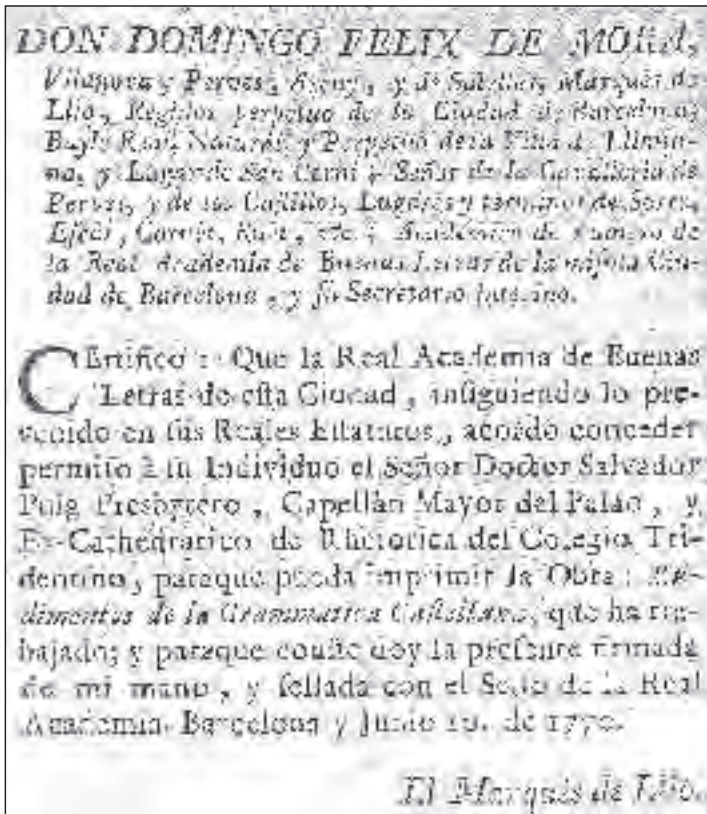 DON DOMINGO FELIX DE MORA,
Vilanova y Pervès, Areny, y de Marquès de
Lliò, Regidor perpetuo de la Ciudad de Barcelona,
Bayle Real, Natural, y Perpetuo de la Villa de Llimia-
na, y Lugar de San Cerni; Señor de la Cavalleria de
Pervès, y de los Castillos, Lugares y terminos de
etc. Academico de numero de
la Real Academia de Buenas Letras de la misma Ciu-
dad de Barcelona, y su Secretario interino.
CErtifico: Que la Real Academia de Buenas
Letras de esta Ciudad, insiguiendo lo pre-
venido en sus Reales Estatutos, acordò conceder
permiso à su Individuo el Señor Doctor Salvador
Puig Presbytero, Capellàn Mayor del Palao, y
Ex-Cathedratico de Rhetorica del Colegio Tri-
dentino, paraque pueda imprimir la Obra: Ru-
dimentos de la Grammatica Castellana, que ha tra-
bajado; y paraque conste doy la presente firmada
de mi mano, y sellada con el Sello de la Real
Academia. Barcelona y Junio 10. de 1770.
El Marquès de Lliò.